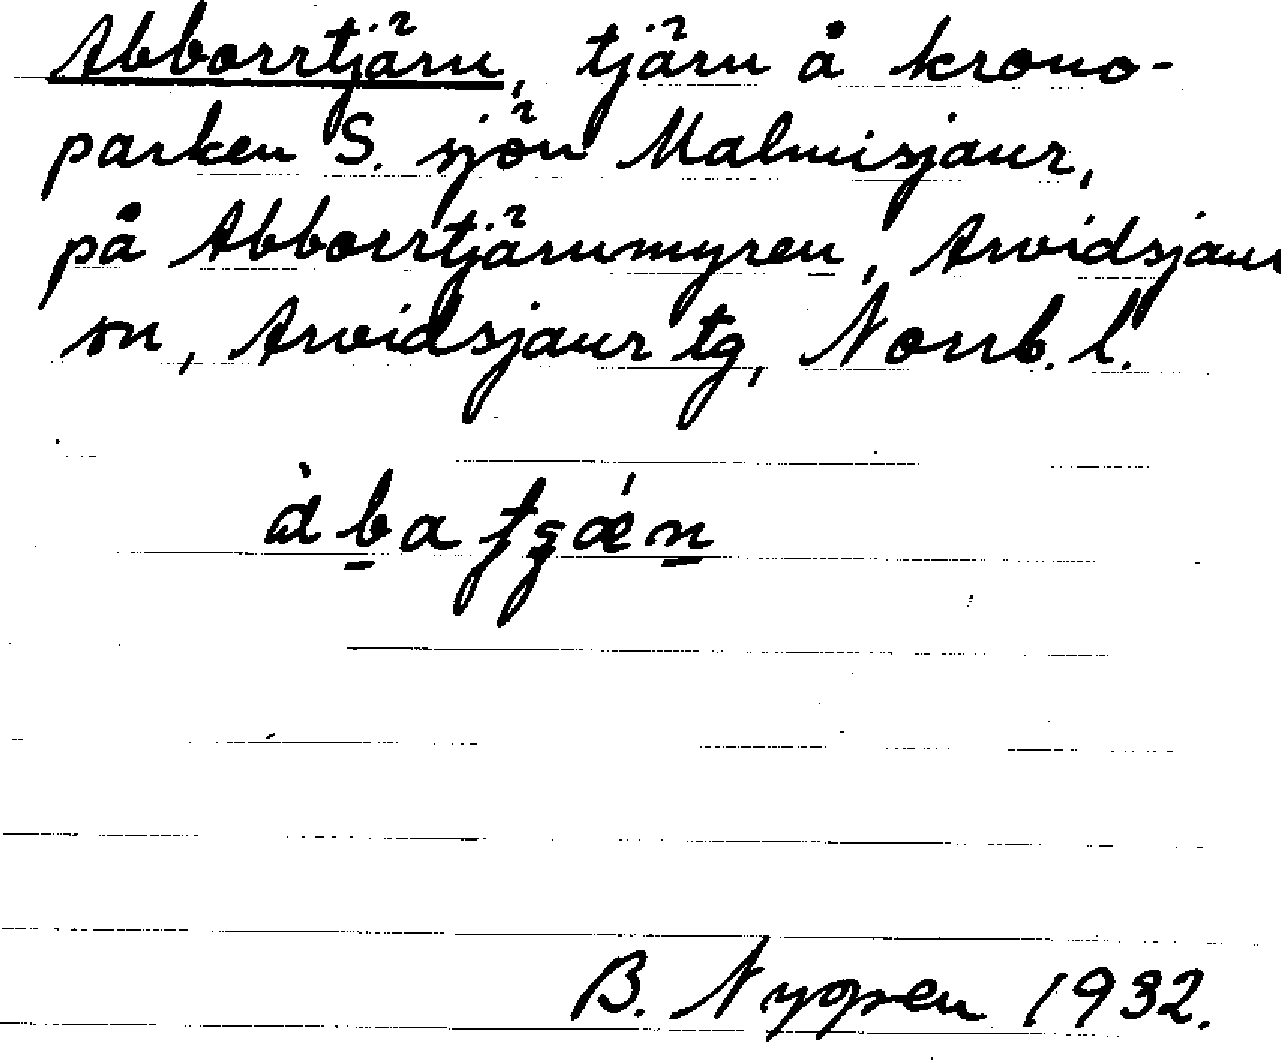 Abborrtjärn, tjärn å krono-
parken S. sjön Malmisjaur,
på Abborrtjärnmyren, Arvidsjaur
sn, Arvidsjaur tg, Norrb. l.
àbatʒǽn
B. Nypen 1932.